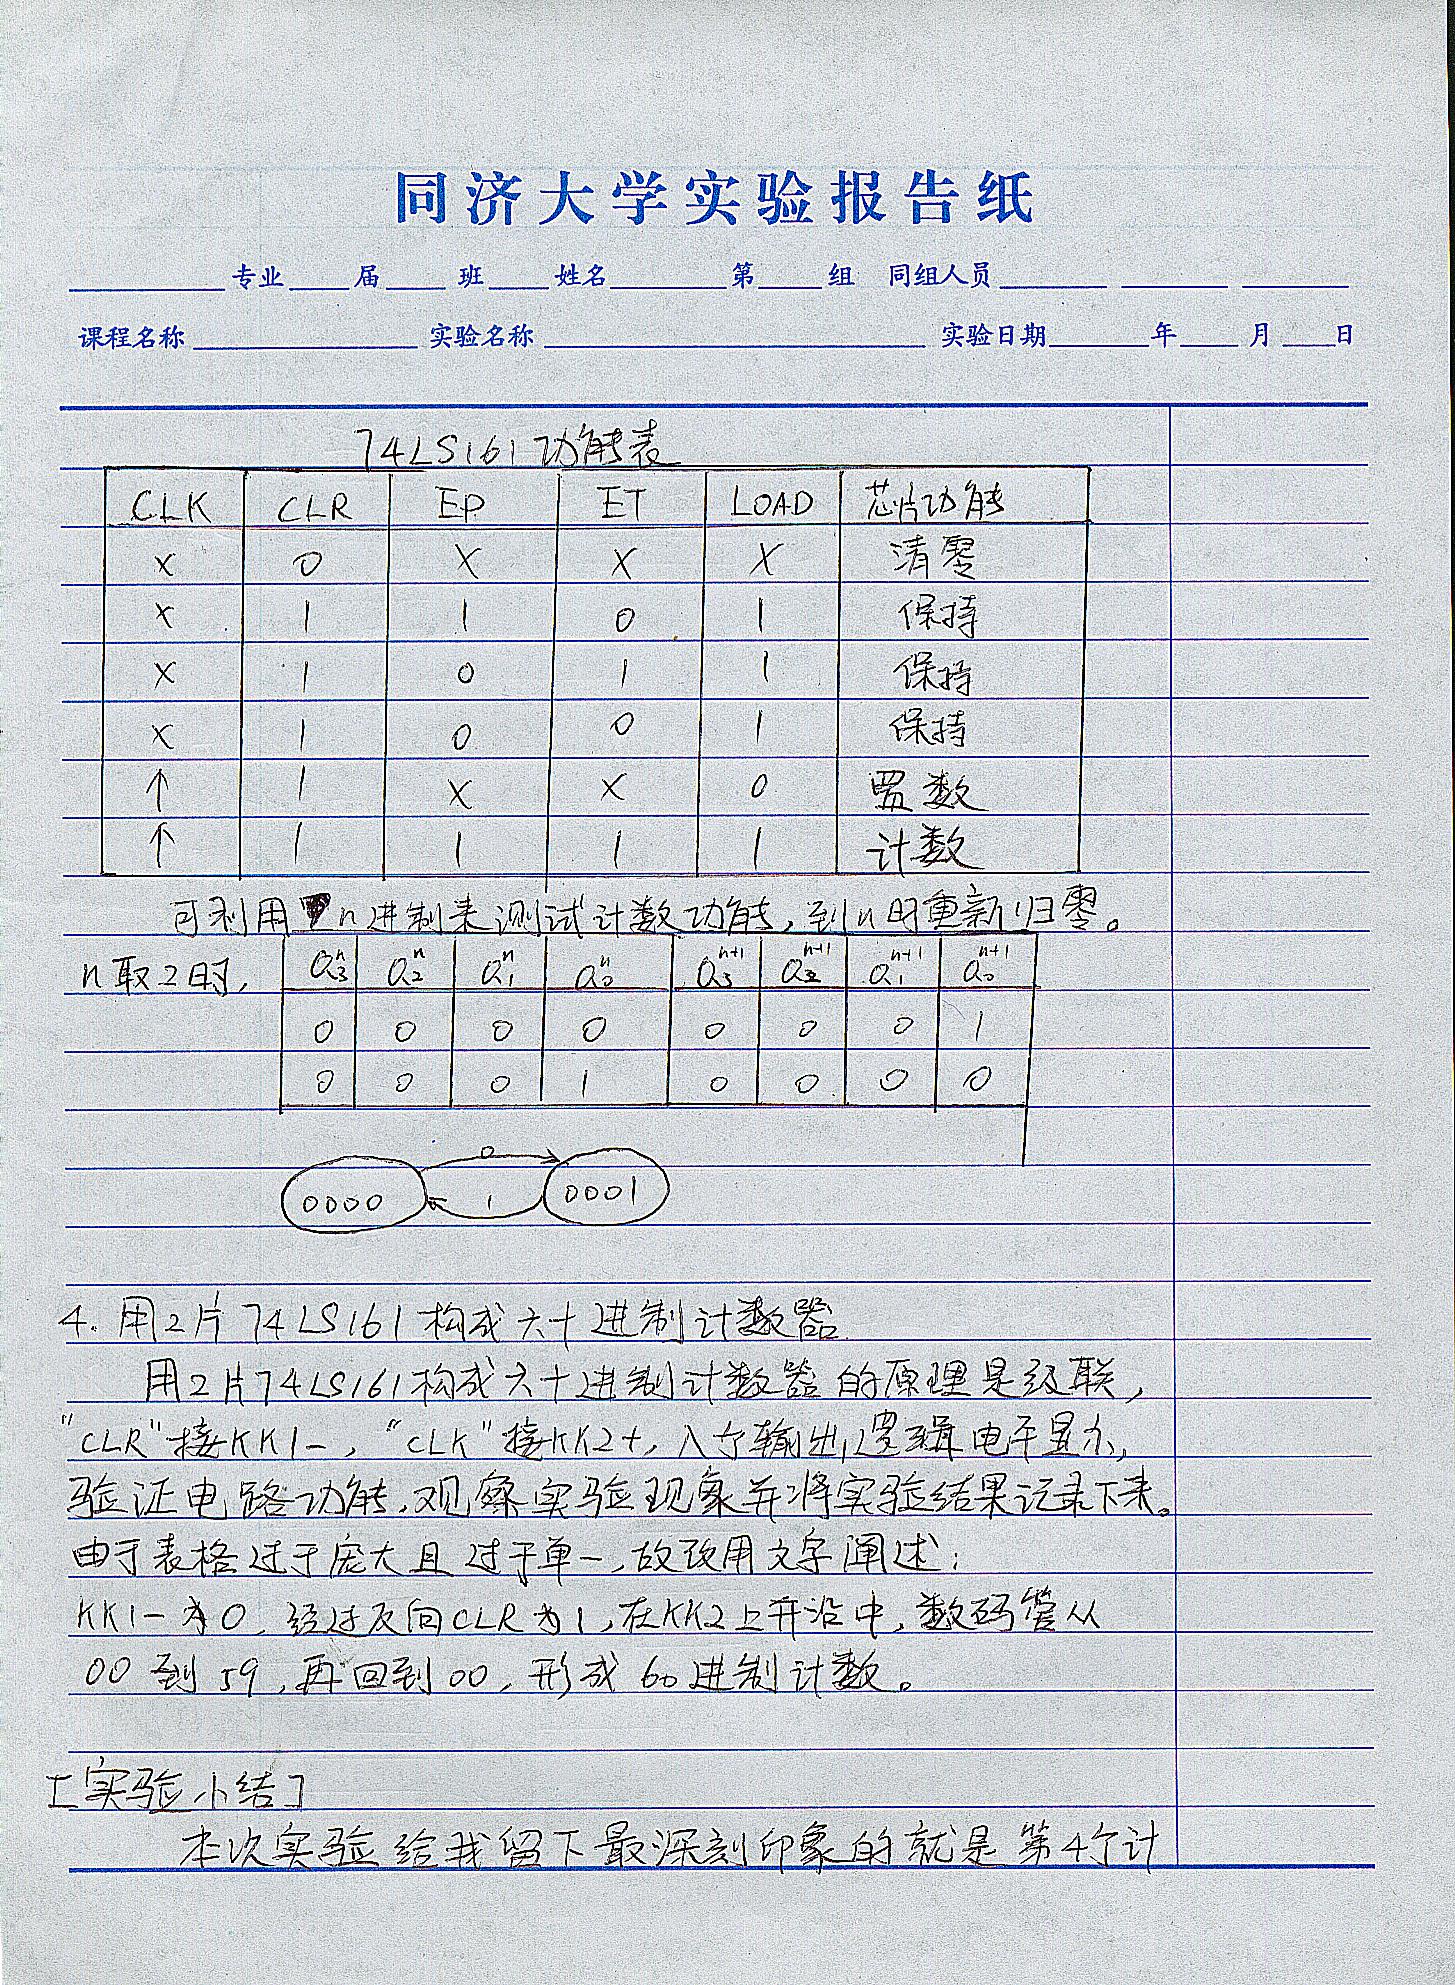 同济大学实验报告纸
专业 届 班 姓名 第 组 同组人员
课程名称 实验名称 实验日期 年 月 日
74LS161功能表
CLK CLR EP ET LOAD 芯片功能
X 0 X X X 清零
X 1 1 0 1 保持
X 1 0 1 1 保持
X 1 0 0 1 保持
↑ 1 X X 0 置数
↑ 1 1 1 1 计数
可利用n进制来测试计数功能，到n时重新归零。
n取2时， Q₃ⁿ Q₂ⁿ Q₁ⁿ Q₀ⁿ Q₃ⁿ⁺¹ Q₂ⁿ⁺¹ Q₁ⁿ⁺¹ Q₀ⁿ⁺¹
0 0 0 0 0 0 0 1
0 0 0 1 0 0 0 0
0
0000 1 0001
4. 用2片74LS161构成六十进制计数器
用2片74LS161构成六十进制计数器的原理是级联，
"CLR"接KK1-，"CLK"接KK2+，八个输出，逻辑电平显示，
验证电路功能，观察实验现象并将实验结果记录下来。
由于表格过于庞大且过于单一，故改用文字阐述：
KK1-为0，经过反向CLR为1，在KK2上升沿中，数码管从
00到59，再回到00，形成60进制计数。
[实验小结]
本次实验给我留下最深刻印象的就是第4个计